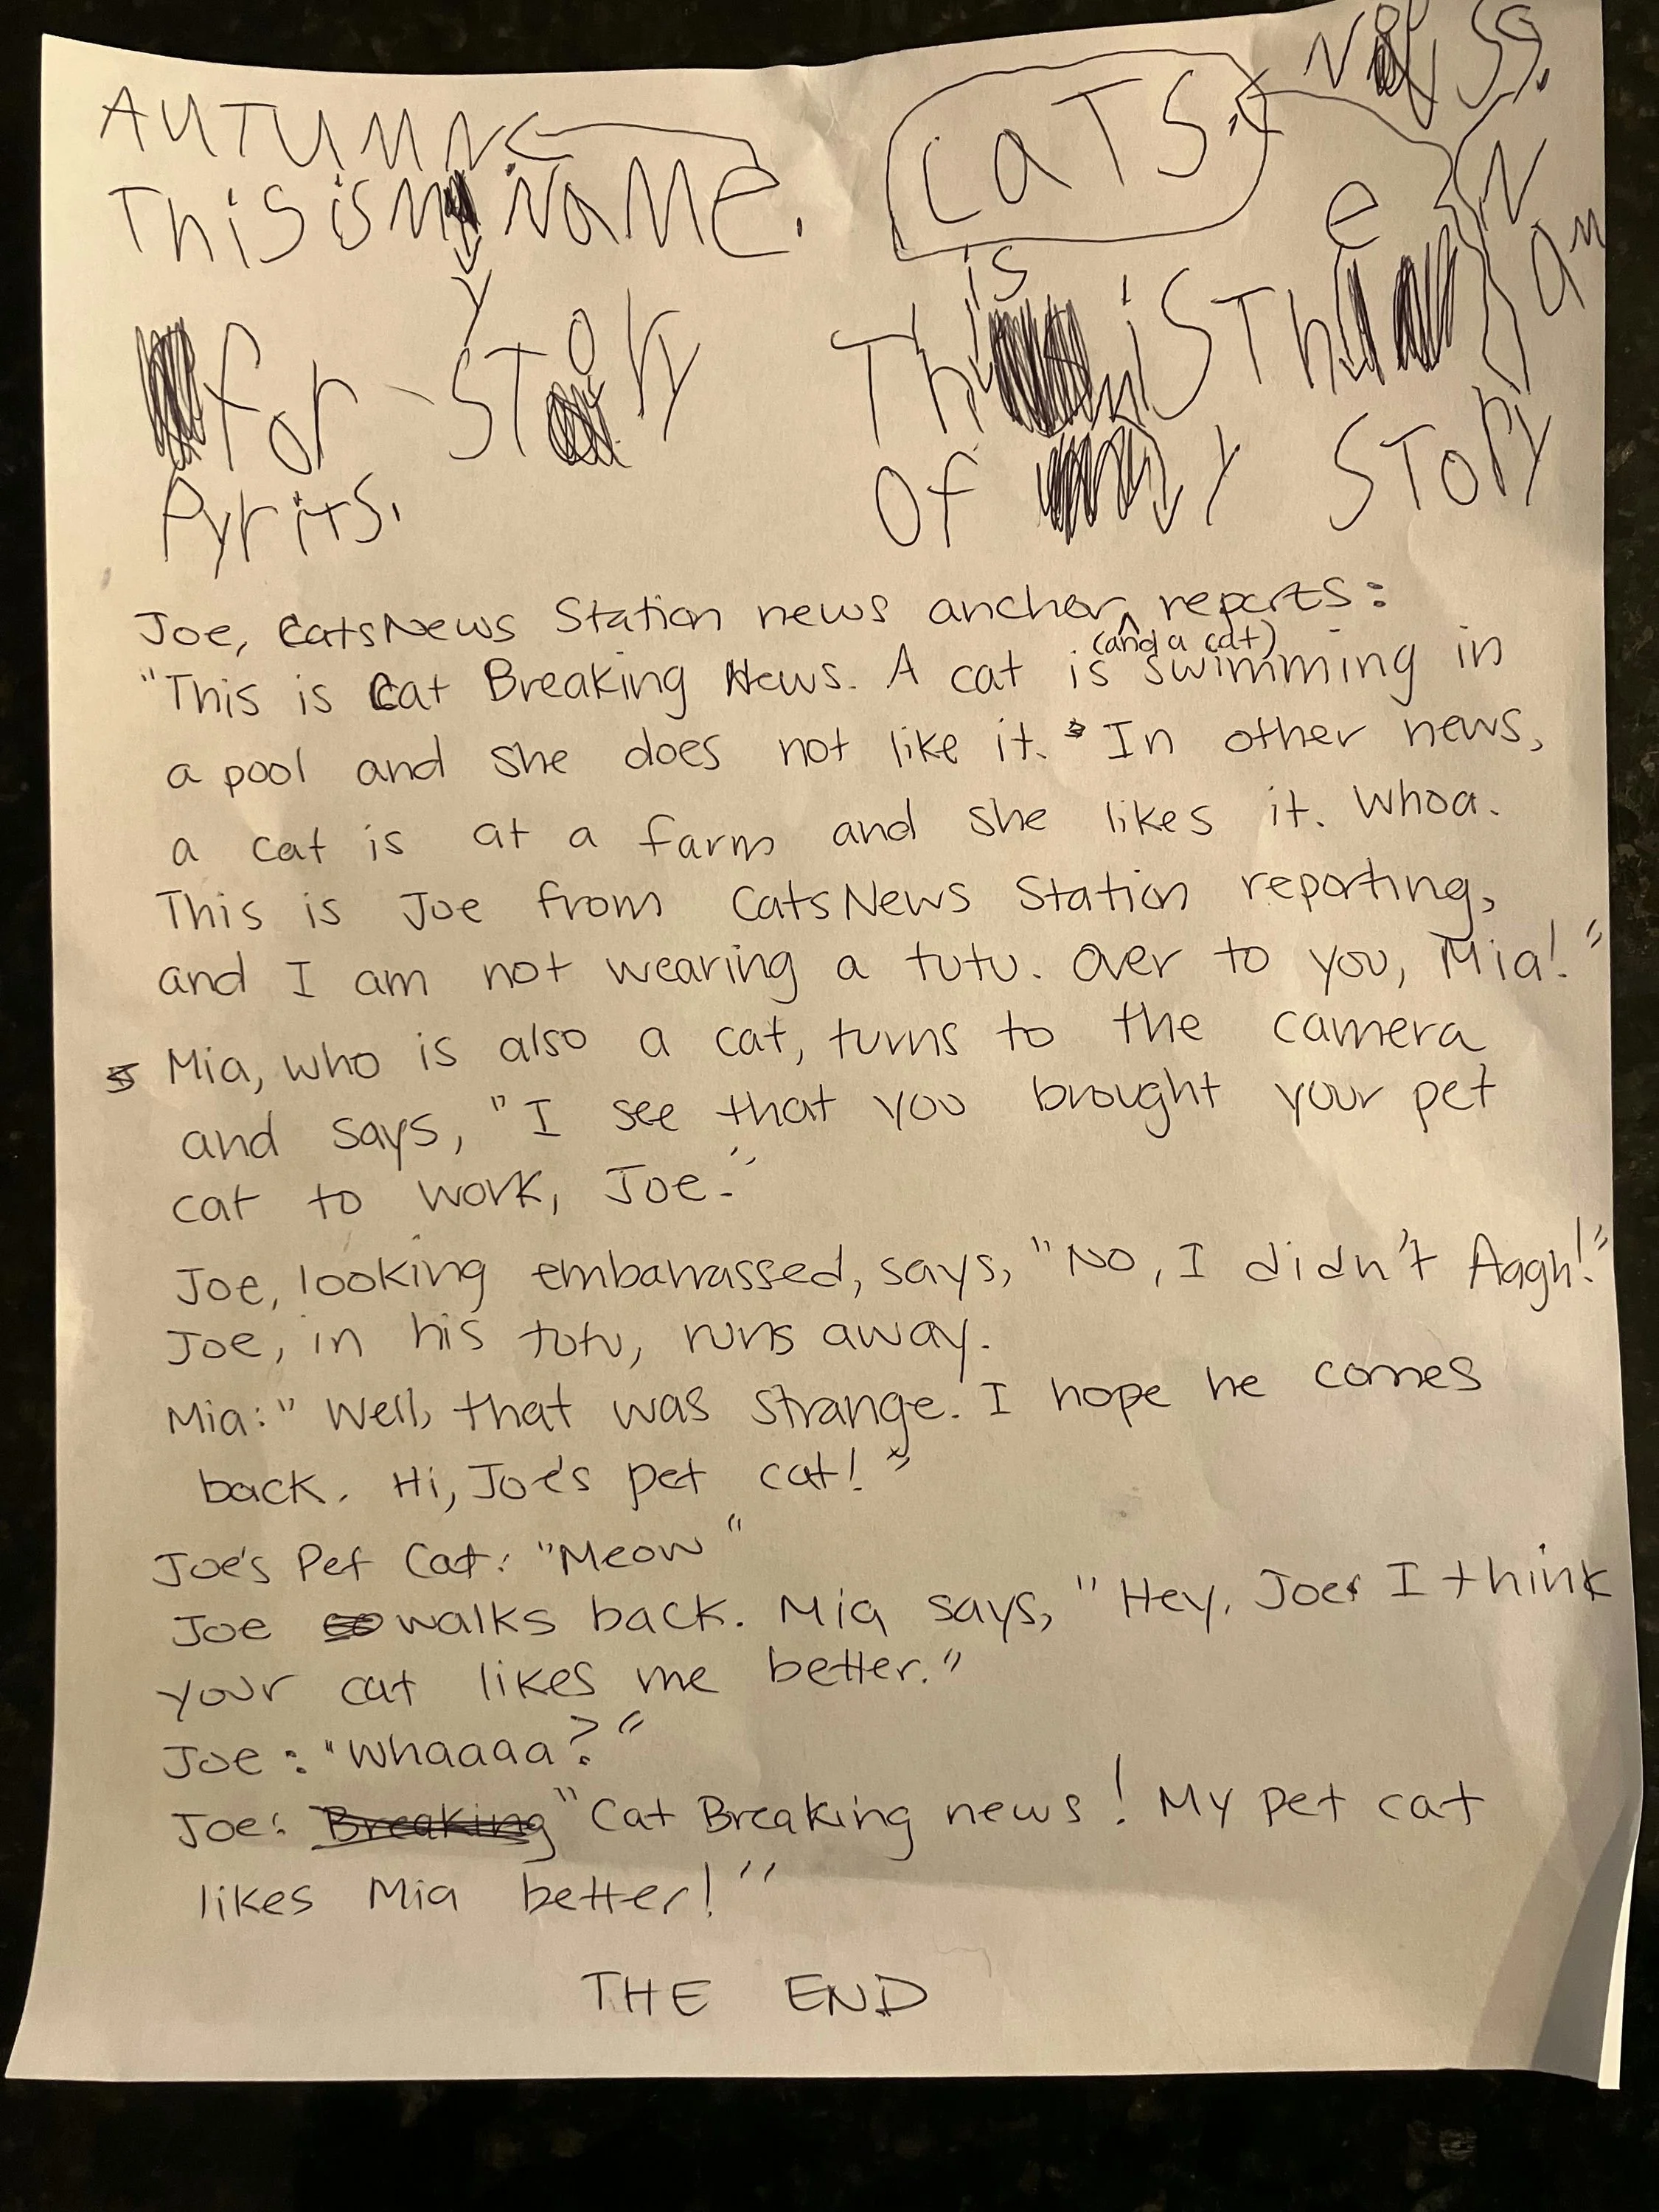 AUTUMN
THiS iS My NaME.
for STORy
Pyrits.
CaTS.
This iS The
Nam
Of My STORy
Joe, CatsNews Station news anchor (and a cat) reports:
"This is Cat Breaking News. A cat is swimming in
a pool and she does not like it. In other news,
a cat is at a farm and she likes it. Whoa.
This is Joe from CatsNews Station reporting,
and I am not wearing a tutu. Over to you, Mia!"
Mia, who is also a cat, turns to the camera
and says, "I see that you brought your pet
cat to work, Joe."
Joe, looking embarrassed, says, "No, I didn't Aagh!"
Joe, in his tutu, runs away.
Mia: "Well, that was strange. I hope he comes
back. Hi, Joe's pet cat!"
Joe's Pet Cat: "Meow"
Joe walks back. Mia says, "Hey, Joe. I think
your cat likes me better."
Joe: "Whaaaa?"
Joe: "Cat Breaking news! My pet cat
likes Mia better!"
THE END